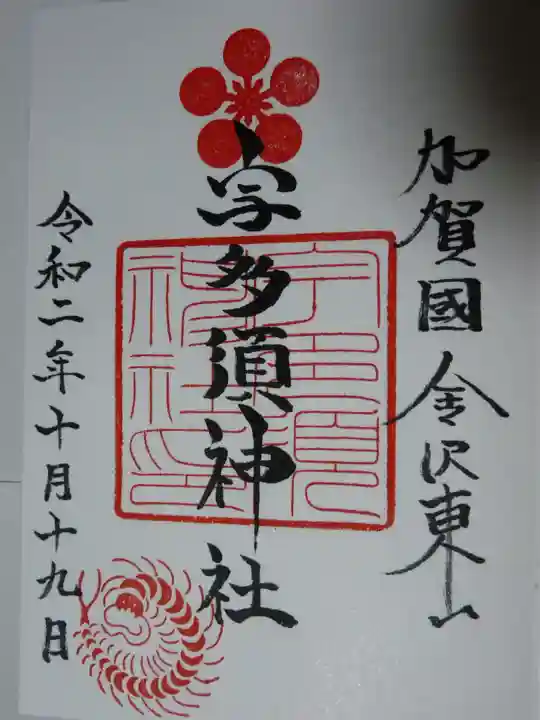 加賀國 金沢東山
宇多須神社
宇多須神社印
令和二年十月十九日